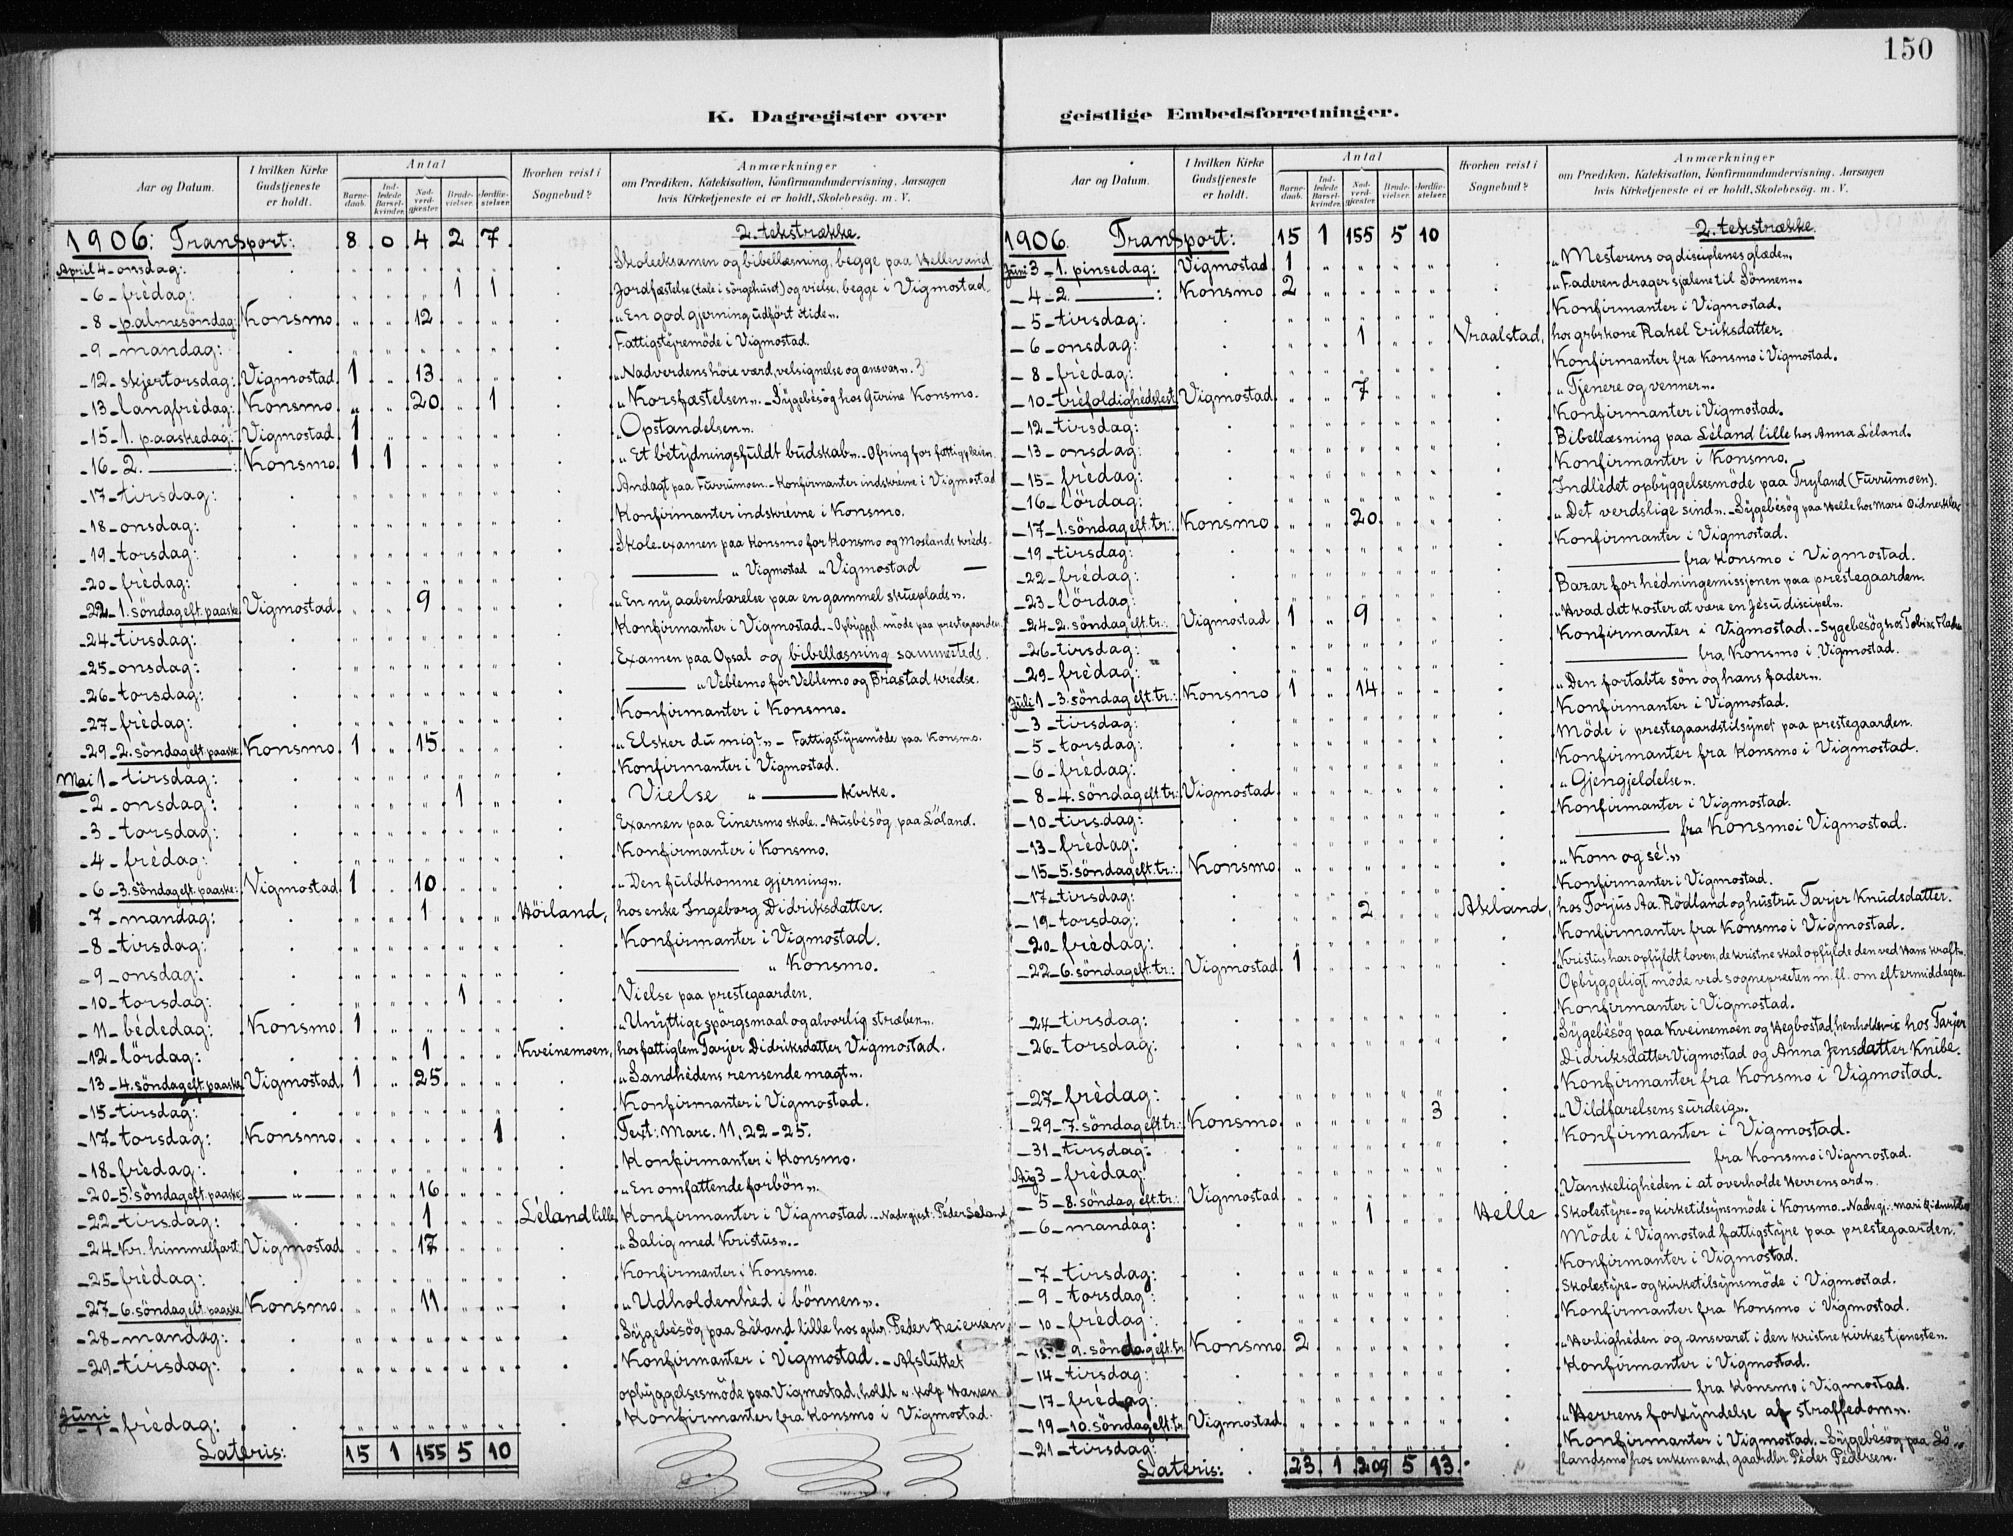 150
K. Dagregister over geistlige Embedsforretninger.
Aar og Datum. I hvilken Kirke Gudstjeneste er holdt. Antal Barnedaab. Indledede Barselkvinder. Nadverdgjester. Brudevielser. Jordfæstelser. Hvorhen reist i Sognebud? Anmærkninger om Prædiken, Katekisation, Konfirmandundervisning, Aarsagen hvis Kirketjeneste ei er holdt, Skolebesøg. m. V.
1906: Transport: 8 0 4 2 7 2. tekstrække.
April 4 - onsdag: Skoleeksamen og bibellæsning, begge paa Hellevand
- 6 - frédag: 1 1 Jordfæstelse (tale i sörgehuset) og vielse, begge i Vigmostad.
- 8 - palmesöndag: Konsmo 12 „En god gjerning udfört itide„.
- 9 - mandag: Fattigstyremöde i Vigmostad.
- 12 - skjertorsdag: Vigmostad 1 13 „Nadverdens höie værd, velsignelse og ansvar„.
- 13 - langfrédag: Konsmo 20 1 „Korsfæstelsen„. - Sygebésög hos Gurine Konsmo.
- 15 - 1. paaskedag: Vigmostad 1 „Opstandelsen„.
- 16 - 2. ——: Konsmo 1 1 „Et betydningsfuldt budskab„. - Ofring for fattigpleien.
- 17 - tirsdag: Andagt paa Furrumoen. - Konfirmanter indskrevne i Vigmostad
- 18 - onsdag: Konfirmanter indskrévne i Konsmo.
- 19 - torsdag: Skole-examen paa Konsmo for Konsmo og Moslands kréds.
- 20 - frédag: —— „ Vigmostad „ Vigmostad —
- 22 - 1. söndag eft. paaske Vigmostad 9 „En ny aabenbarelse paa en gammel skueplads„.
- 24 - tirsdag: Konfirmanter i Vigmostad. - Opbyggel. möde paa prestegaarden
- 25 - onsdag: Examen paa Opsal og bibellæsning sammesteds.
- 26 - torsdag: —— „ Veblemo for Veblemo og Brastad krédse.
- 27 - frédag: Konfirmanter i Konsmo.
- 29 - 2. söndag eft. paaske Konsmo 1 15 „Elsker du mig?„ - Fattigstyremöde paa Konsmo.
Mai 1 - tirsdag: Konfirmanter i Vigmostad.
- 2 - onsdag: 1 Vielse „ —— Kirke.
- 3 - torsdag: Examen paa Einersmo skole. - Husbésög paa Löland.
- 4 - frédag: Konfirmanter i Konsmo.
- 6 - 3. söndag eft. paaske: Vigmostad 1 10 „Den fuldkomne gjerning„.
- 7 - mandag: 1 Hörland, hos enke Ingeborg Didriksdatter.
- 8 - tirsdag: Konfirmanter i Vigmostad.
- 9 - onsdag: —— „ Konsmo.
- 10 - torsdag: 1 Vielse paa prestegaarden.
- 11 - bédedag: Konsmo 1 „Unyttige spörgsmaal og alvorlig stræben„.
- 12 - lördag: 1 Kveinemoen, hos fattiglem Tarjer Didriksdatter Vigmostad.
- 13 - 4. söndag eft. paaske Vigmostad 1 25 „Sandhédens rensende magt„.
- 15 - tirsdag: Konfirmanter i Vigmostad.
- 17 - torsdag: Konsmo 1 Text: Marc. 11, 22-25.
- 18 - frédag: Konfirmanter i Konsmo.
- 20 - 5. söndag eft. paaske: —„— 16 „En omfattende forbön„.
- 22 - tirsdag: 1 Léland lille Konfirmanter i Vigmostad. - Nadvgjest: Péder Léland
- 24 - Kr. himmelfart: Vigmostad 17 „Salig med Kristus„. -
- 25 - frédag: Konfirmanter i Konsmo.
- 27 - 6. söndag eft. paaske Konsmo 11 „Udholdenhéd i bönnen„.
- 28 - mandag: Sygebésög paa Léland lille hos gbr. Péder Reiersen
- 29 - tirsdag: Konfirmanter i Vigmostad. - Afsluttet
opbyggelsesmöde paa Vigmostad, holdt v. kolp. Hansen
Juni 1 - frédag: Konfirmanter fra Konsmo i Vigmostad.
Lateris: 15 1 155 5 10
Aar og Datum. I hvilken Kirke Gudstjeneste er holdt. Antal Barnedaab. Indledede Barselkvinder. Nadverdgjæster. Brudevielser. Jordfæstelser. Hvorhen reist i Sognebud? Anmærkninger om Prædiken, Katekisation, Konfirmandundervisning. Aarsagen hvis Kirketjeneste ei er holdt, Skolebesøg. m. V.
1906. Transport: 15 1 155 5 10 2. tekstrække.
Juni 3 - 1. pinsedag: Vigmostad 1 „Mesterens og disciplenes glæde„.
- 4 - 2. ——: Konsmo 2 „Faderen drager sjælene til Sönnen„.
- 5 - tirsdag: Konfirmanter i Vigmostad.
- 6 - onsdag: 1 Vraalstad, hos gbrkone Rakel Eriksdatter.
- 8 - frédag: Konfirmanter fra Konsmo i Vigmostad.
- 10 - tréfoldighédsfest Vigmostad 7 „Tjenere og venner„.
- 12 - tirsdag: Konfirmanter i Vigmostad.
- 13 - onsdag: Bibellæsning paa Léland lille hos Anna Léland.
- 15 - frédag: Konfirmanter i Konsmo.
- 16 - lördag: Indlédet opbyggelsesmöde paa Tryland (Furrumoen).
- 17 - 1. söndag eft. tr.: Konsmo 20 „Det verdslige sind„. - Sygebésög paa Helle hos Mari
- 19 - tirsdag: Konfirmanter i Vigmostad.
- 22 - frédag: —— fra Konsmo i Vigmostad.
- 23 - lördag: Bazar for hédningemissjonen paa prestegaarden.
- 24 - 2. söndag eft. tr.: Vigmostad 1 9 „Hvad det koster at være en Jésu discipel„.
- 26 - tirsdag: Konfirmanter i Vigmostad. - Sygebésög hos Tobias
- 29 - frédag: —— fra Konsmo i Vigmostad.
Juli 1 - 3. söndag eft. tr.: Konsmo 1 14 „Den fortabte sön og hans fader„.
- 3 - tirsdag: Konfirmanter i Vigmostad.
- 5 - torsdag: Möde i prestegaardstilsynet paa prestegaarden.
- 6 - frédag: Konfirmanter fra Konsmo i Vigmostad.
- 8 - 4. söndag eft. tr.: Vigmostad „Gjengjeldelse„.
- 10 - tirsdag: Konfirmanter i Vigmostad.
- 13 - frédag: —— fra Konsmo i Vigmostad.
- 15 - 5. söndag eft. tr.: Konsmo „Kom og sé!„
- 17 - tirsdag: Konfirmanter i Vigmostad.
- 19 - torsdag: 2 Akland, hos Tarjus Aa. Rödland og hustru Tarjer Knudsdatter.
- 20 - frédag: Konfirmanter fra Konsmo i Vigmostad.
- 22 - 6. söndag eft. tr.: Vigmostad 1 „Kristus har opfyldt loven, de kristne skal opfylde den ved Hans kraft„.
Opbyggeligt möde ved sognepresten m. fl. om eftermiddagen.
- 24 - tirsdag: Konfirmanter i Vigmostad.
- 26 - torsdag: Sygebésög paa Kveinemoen og Hegbostad, henholdsvis hos Tarjer
Didriksdatter Vigmostad og Anna Jensdatter Knibe.
- 27 - frédag: Konfirmanter fra Konsmo i Vigmostad.
- 29 - 7. söndag eft. tr.: Konsmo 3 „Vildfarelsens surdeig„.
- 31 - tirsdag: Konfirmanter i Vigmostad.
Aug 3 - frédag: —— fra Konsmo i Vigmostad.
- 5 - 8. söndag eft. tr.: Vigmostad „Vanskelighéden i at overholde Herrens ord„.
- 6 - mandag: 1 Helle Skolestyre- og kirketilsynsmöde i Konsmo. - Nadvgj.: mari
Möde i Vigmostad fattigstyre paa prestegaarden.
- 7 - tirsdag: Konfirmanter i Vigmostad.
- 9 - torsdag: Skolestyre- og kirketilsynsmöde i Vigmostad.
- 10 - frédag: Konfirmanter fra Konsmo i Vigmostad.
- 9. söndag eft. tr. Konsmo 2 „Herligheden og ansvaret i den kristne kirkes tjeneste„.
- 14 - tirsdag: Konfirmanter i Vigmostad.
- 17 - frédag: —— fra Konsmo i Vigmostad.
- 19 - 10. söndag eft. tr. Vigmostad „Herrens forkyndelse af straffedom„.
- 21 - tirsdag: Konfirmanter i Vigmostad. - Sygebésög paa Lö-
Lateris: 23 1 209 5 13 landsmo hos enkemand, gaardbr. Péder Pédersen.